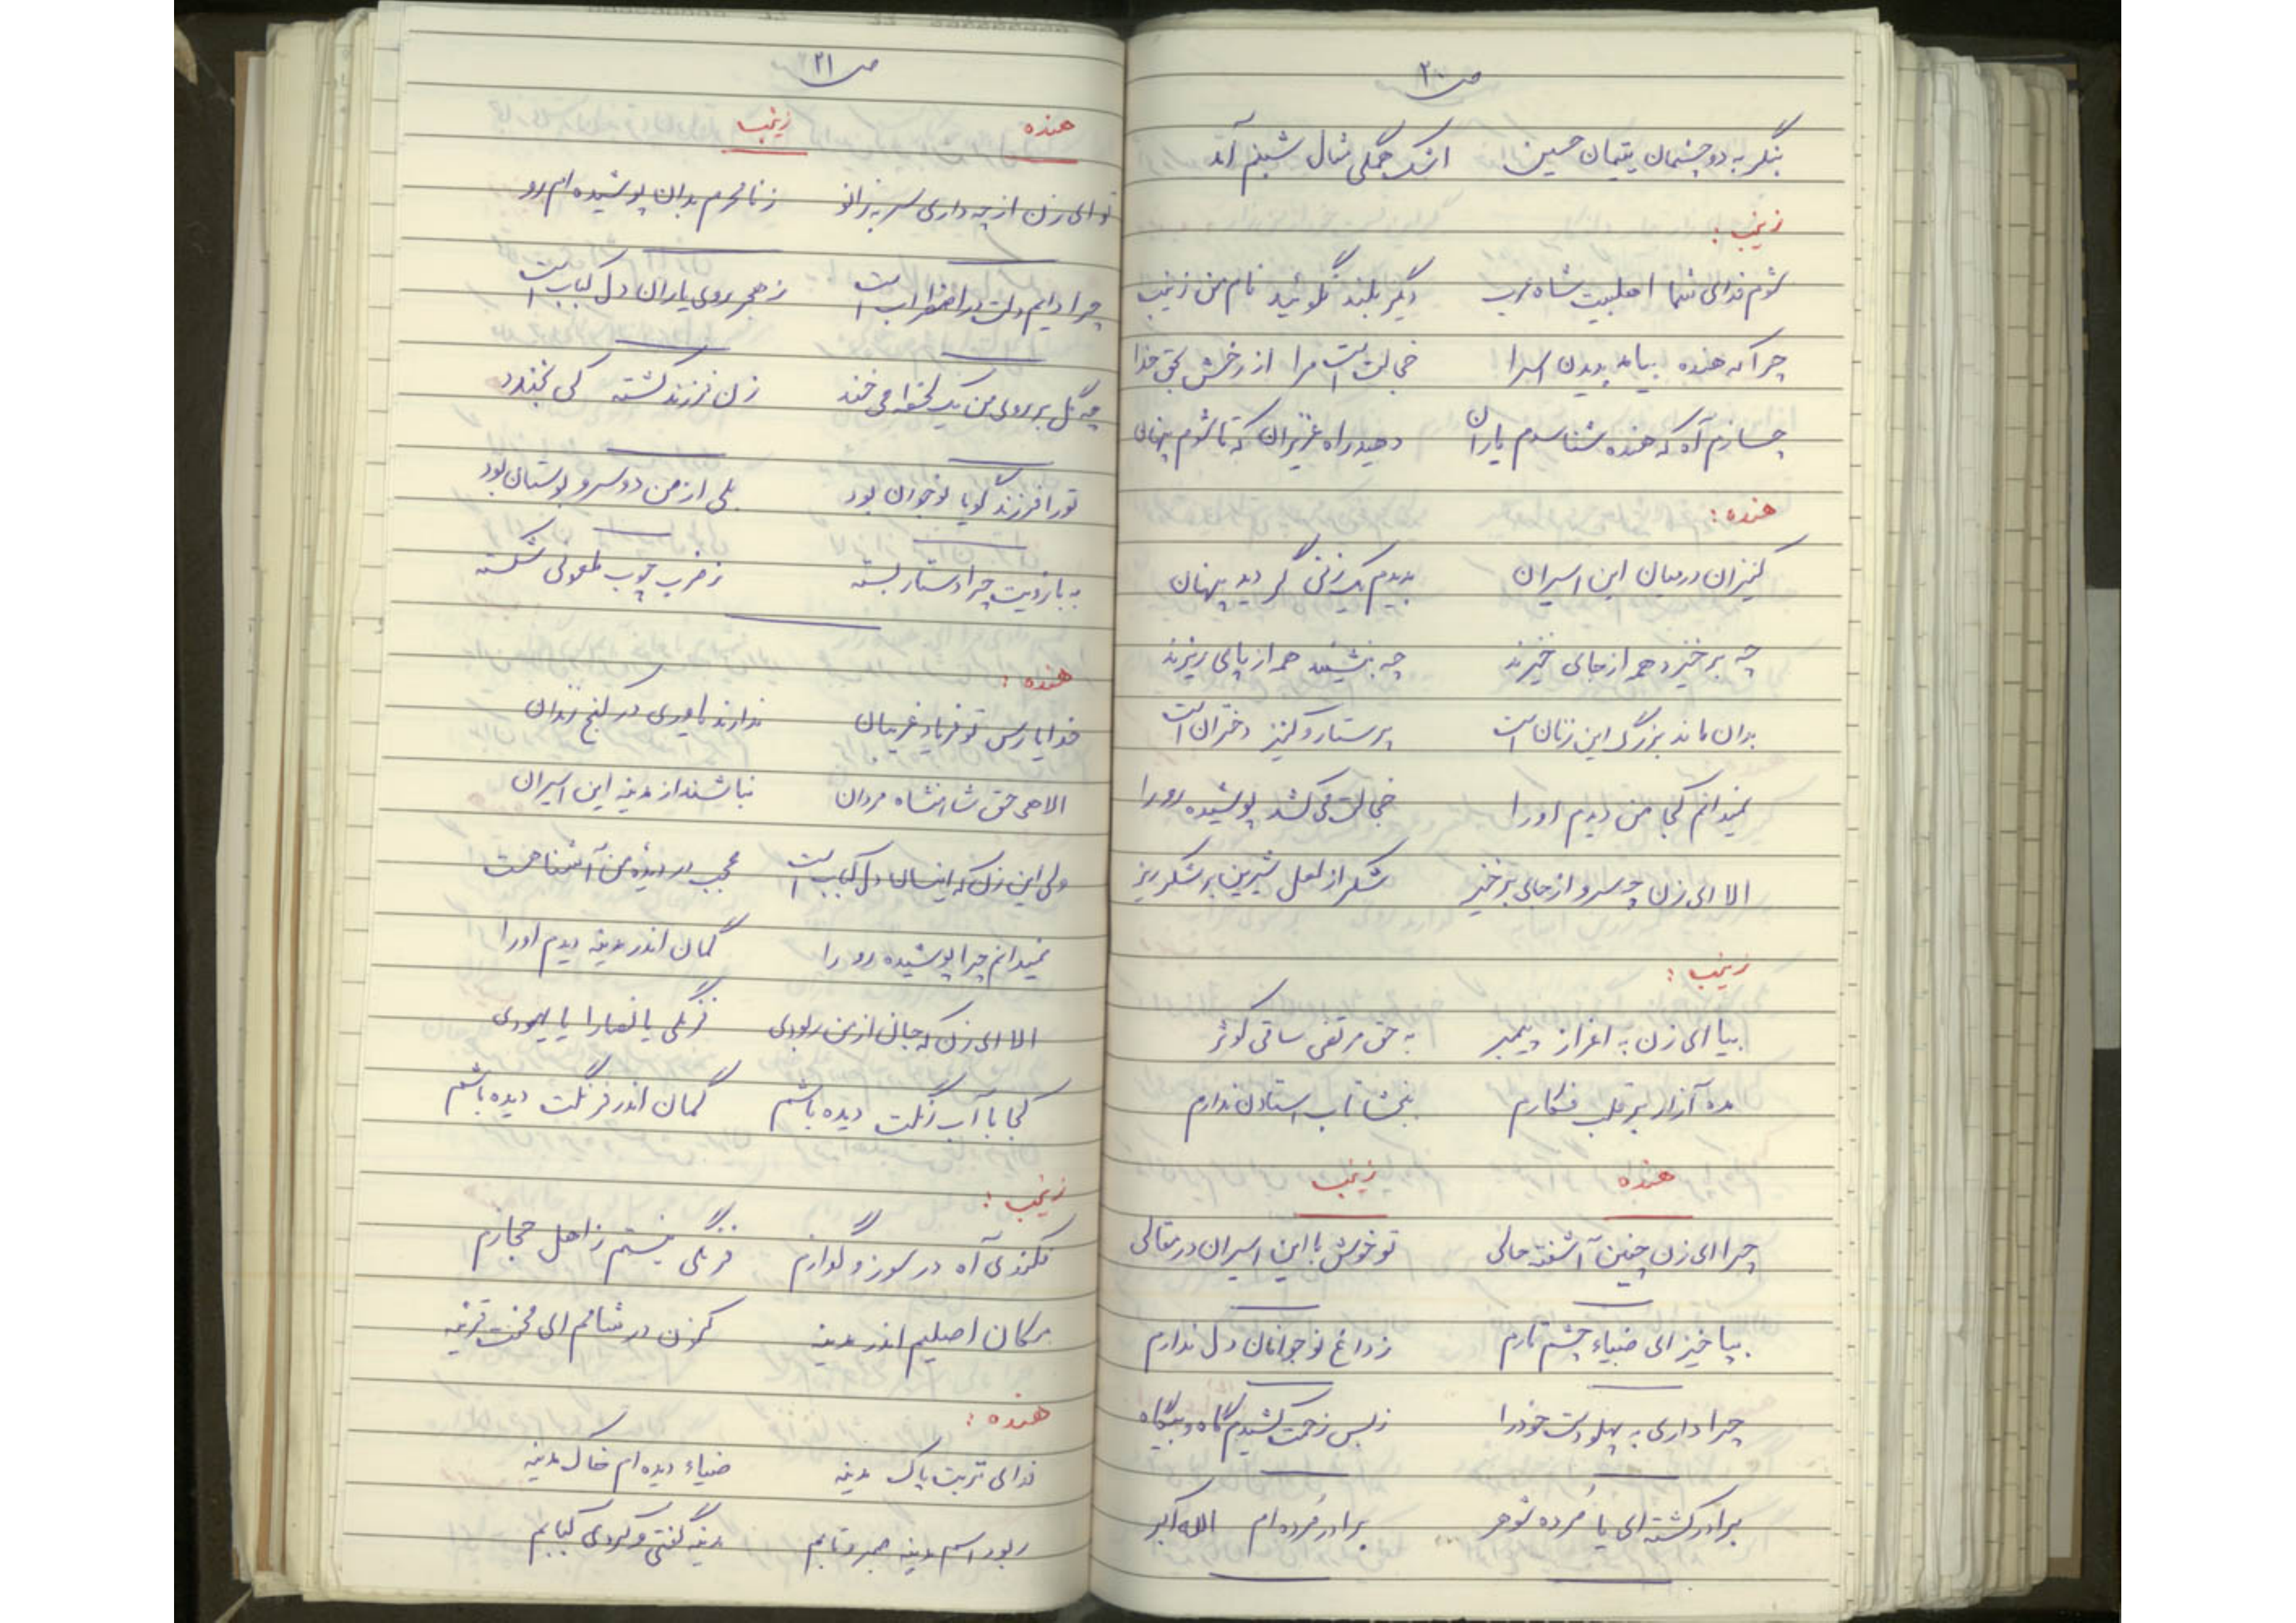 ص ۲۰
بنگر به دو چشمان یتیمان حسین اشک جملگی مثال شبنم آمد
زینب :
شوم فدای شما اهلبیت شاه عرب دگر بلند نگوئید نام من زینب
چرا که هنده بیامد بدیدن اسرا خجالت است مرا از رخش بحق خدا
چسازم آه که هنده شناسدم یاران دهید راه عزیزان که تا شوم پنهان
هنده :
کنیزان درمیان این اسیران بدیدم یک زنی گردید پنهان
چه برخیزد همه از جای خیزند چه بنشیند همه از پای ریزند
بدان ماند بزرگ این زنان است پرستار و کنیز دختران است
نمیدانم کجا من دیدم او را خجالت می کشد پوشیده رو را
الا ای زن چه سرو از جای برخیز شکر از لعل شیرین بر شکر ریز
زینب :
بیا ای زن به اعزاز پیمبر به حق مرتضی ساقی کوثر
مده آزار بر قلب فکارم ببخشا تاب استادن ندارم
هنده زینب
چرا ای زن چنین آشفته حالی تو خوش با این اسیران در مقالی
بپا خیز ای ضیاء چشم تارم ز داغ نوجوانان دل ندارم
چرا داری به پهلو دست خود را ز بس زحمت کشیدم گاه و بیگاه
برادر کشته ای یا مُرده شوهر برادر مُرده ام الله اکبر
ص ۲۱
هنده زینب
تو ای زن از چه داری سر به زانو ز نامحرم بدان پوشیده ام رو
چرا دایم دلت در اضطراب است ز هجر روی یاران دل کباب است
چه گل بر روی من یک لحظه می خند زن فرزند کشته کی بخندد
تو را فرزند گویا نوجوان بود بلی از من دو سرو بوستان بود
به بازویت چرا دستار بسته ز ضرب چوب ملعونی شکسته
هنده :
خدایا رس تو فریاد غریبان ندارند یاوری در کنج زندان
الاهی حق شاهنشاه مردان نباشند از مدینه این اسیران
ولی این زن که اینسان دل کباب است عجب در دیده من آشناهست
نمیدانم چرا پوشیده رو را گمان اندر مدینه دیدم او را
الا ای زن که جان از من ربودی فرنگی یا نصارا یا یهودی
کجا با آب رنگت دیده باشم گمان اندر فرنگت دیده باشم
زینب :
فکندی آه در سوز و گدازم فرنگی نیستم ز اهل حجازم
مکان اصلیم اندر مدینه کنون در شامم ای محنت قرینه
هنده :
فدای تربت پاک مدینه ضیاء دیده ام خاک مدینه
ربود اسم مدینه صبر و تابم مدینه گفتی و کردی کبابم